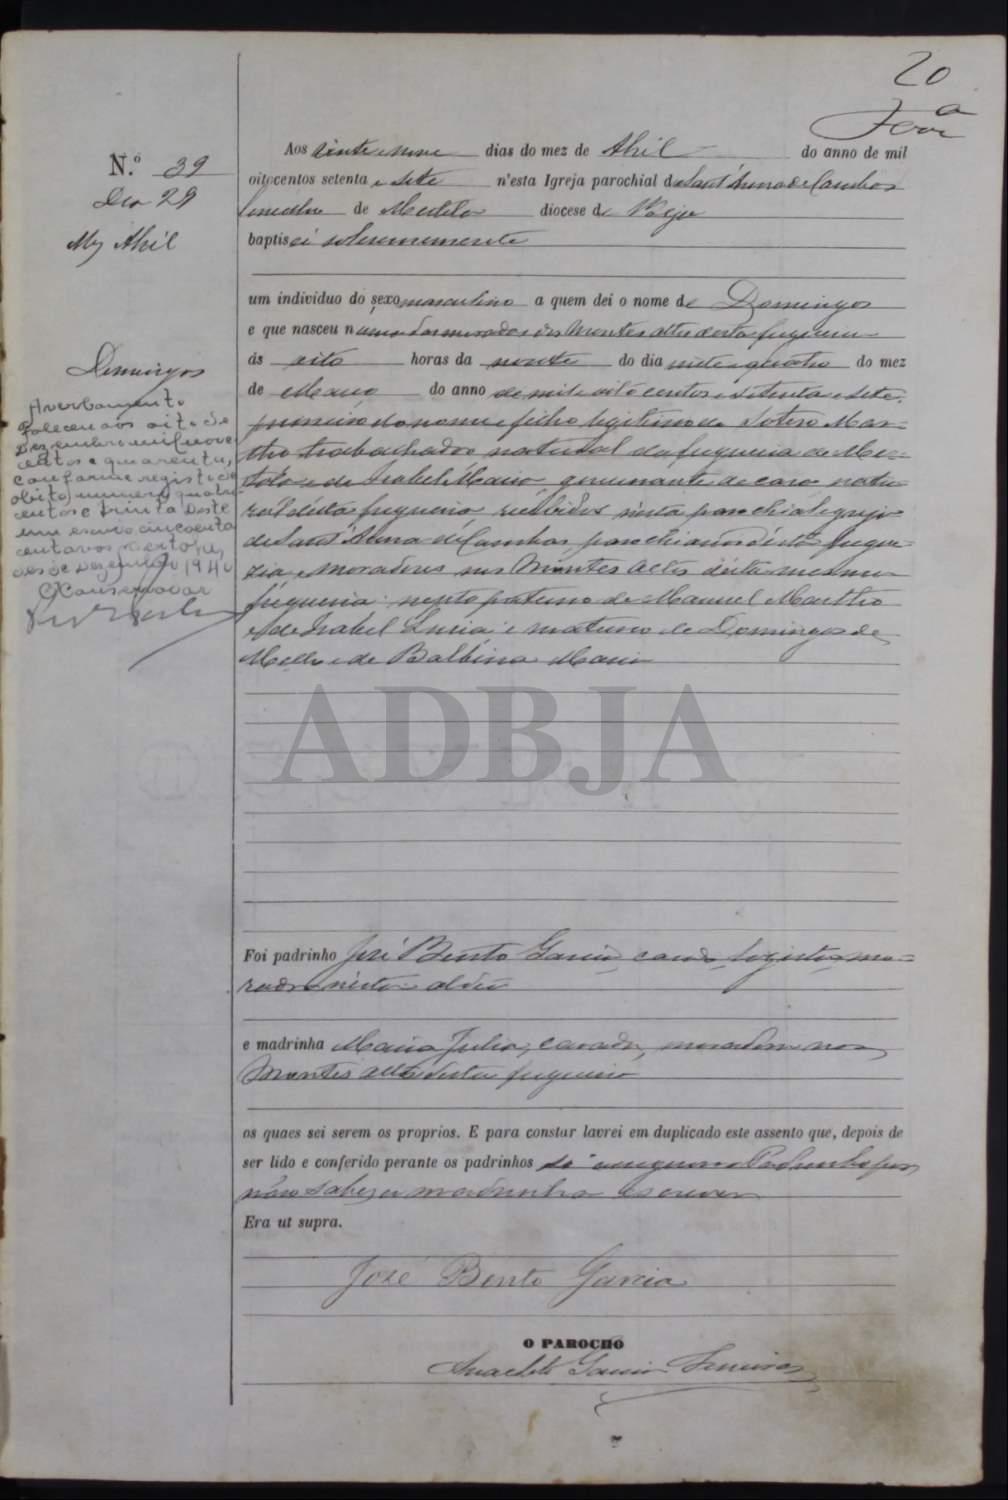 20
Nº 39
Dia 29
Mez Abril
Domingos
Averbamento
Faleceu aos oito de
Dezembro mil nove
centos e quarenta,
conforme registo de
obito numero quatro
centos e trinta deste
cincoenta
centavos
Dezembro 1940
O Conservador
Aos vinte e nove dias do mez de Abril do anno de mil
oitocentos setenta e sete n'esta Igreja parochial de Sant'Anna de Cambas
Concelho de Mertola diocese de Beja
baptisei solemnemente
um individuo do sexo masculino a quem dei o nome de Domingos
e que nasceu n moradas dos Montes altos desta freguezia
ás oito horas da noute do dia vinte e quatro do mez
de Março do anno de mil oitocentos e setenta e sete,
primeiro do nome e filho legitimo de Sotero Mar-
tho trabalhador natural da freguezia de Mer-
tola e de Isabel Maria governante de casa natu-
ral desta freguezia recebidos nesta parochial egreja
de Sant'Anna de Cambas, parochianos desta fregue-
zia e moradores nos Montes Altos desta mesma
freguezia: neto paterno de Manuel Martho
e de Isabel Luzia e materno de Domingos de
Mello e de Balbina Maria
ADBJA
Foi padrinho José Bento Garcia, casado, logista, mo-
rador nesta aldeia
e madrinha Maria Julia, casada, moradora nos
Montes altos desta freguezia
os quaes sei serem os proprios. E para constar lavrei em duplicado este assento que, depois de
ser lido e conferido perante os padrinhos só assignou o Padrinho por
não saber a madrinha escrever
Era ut supra.
José Bento Garcia
O PAROCHO
Anacleto Garcia